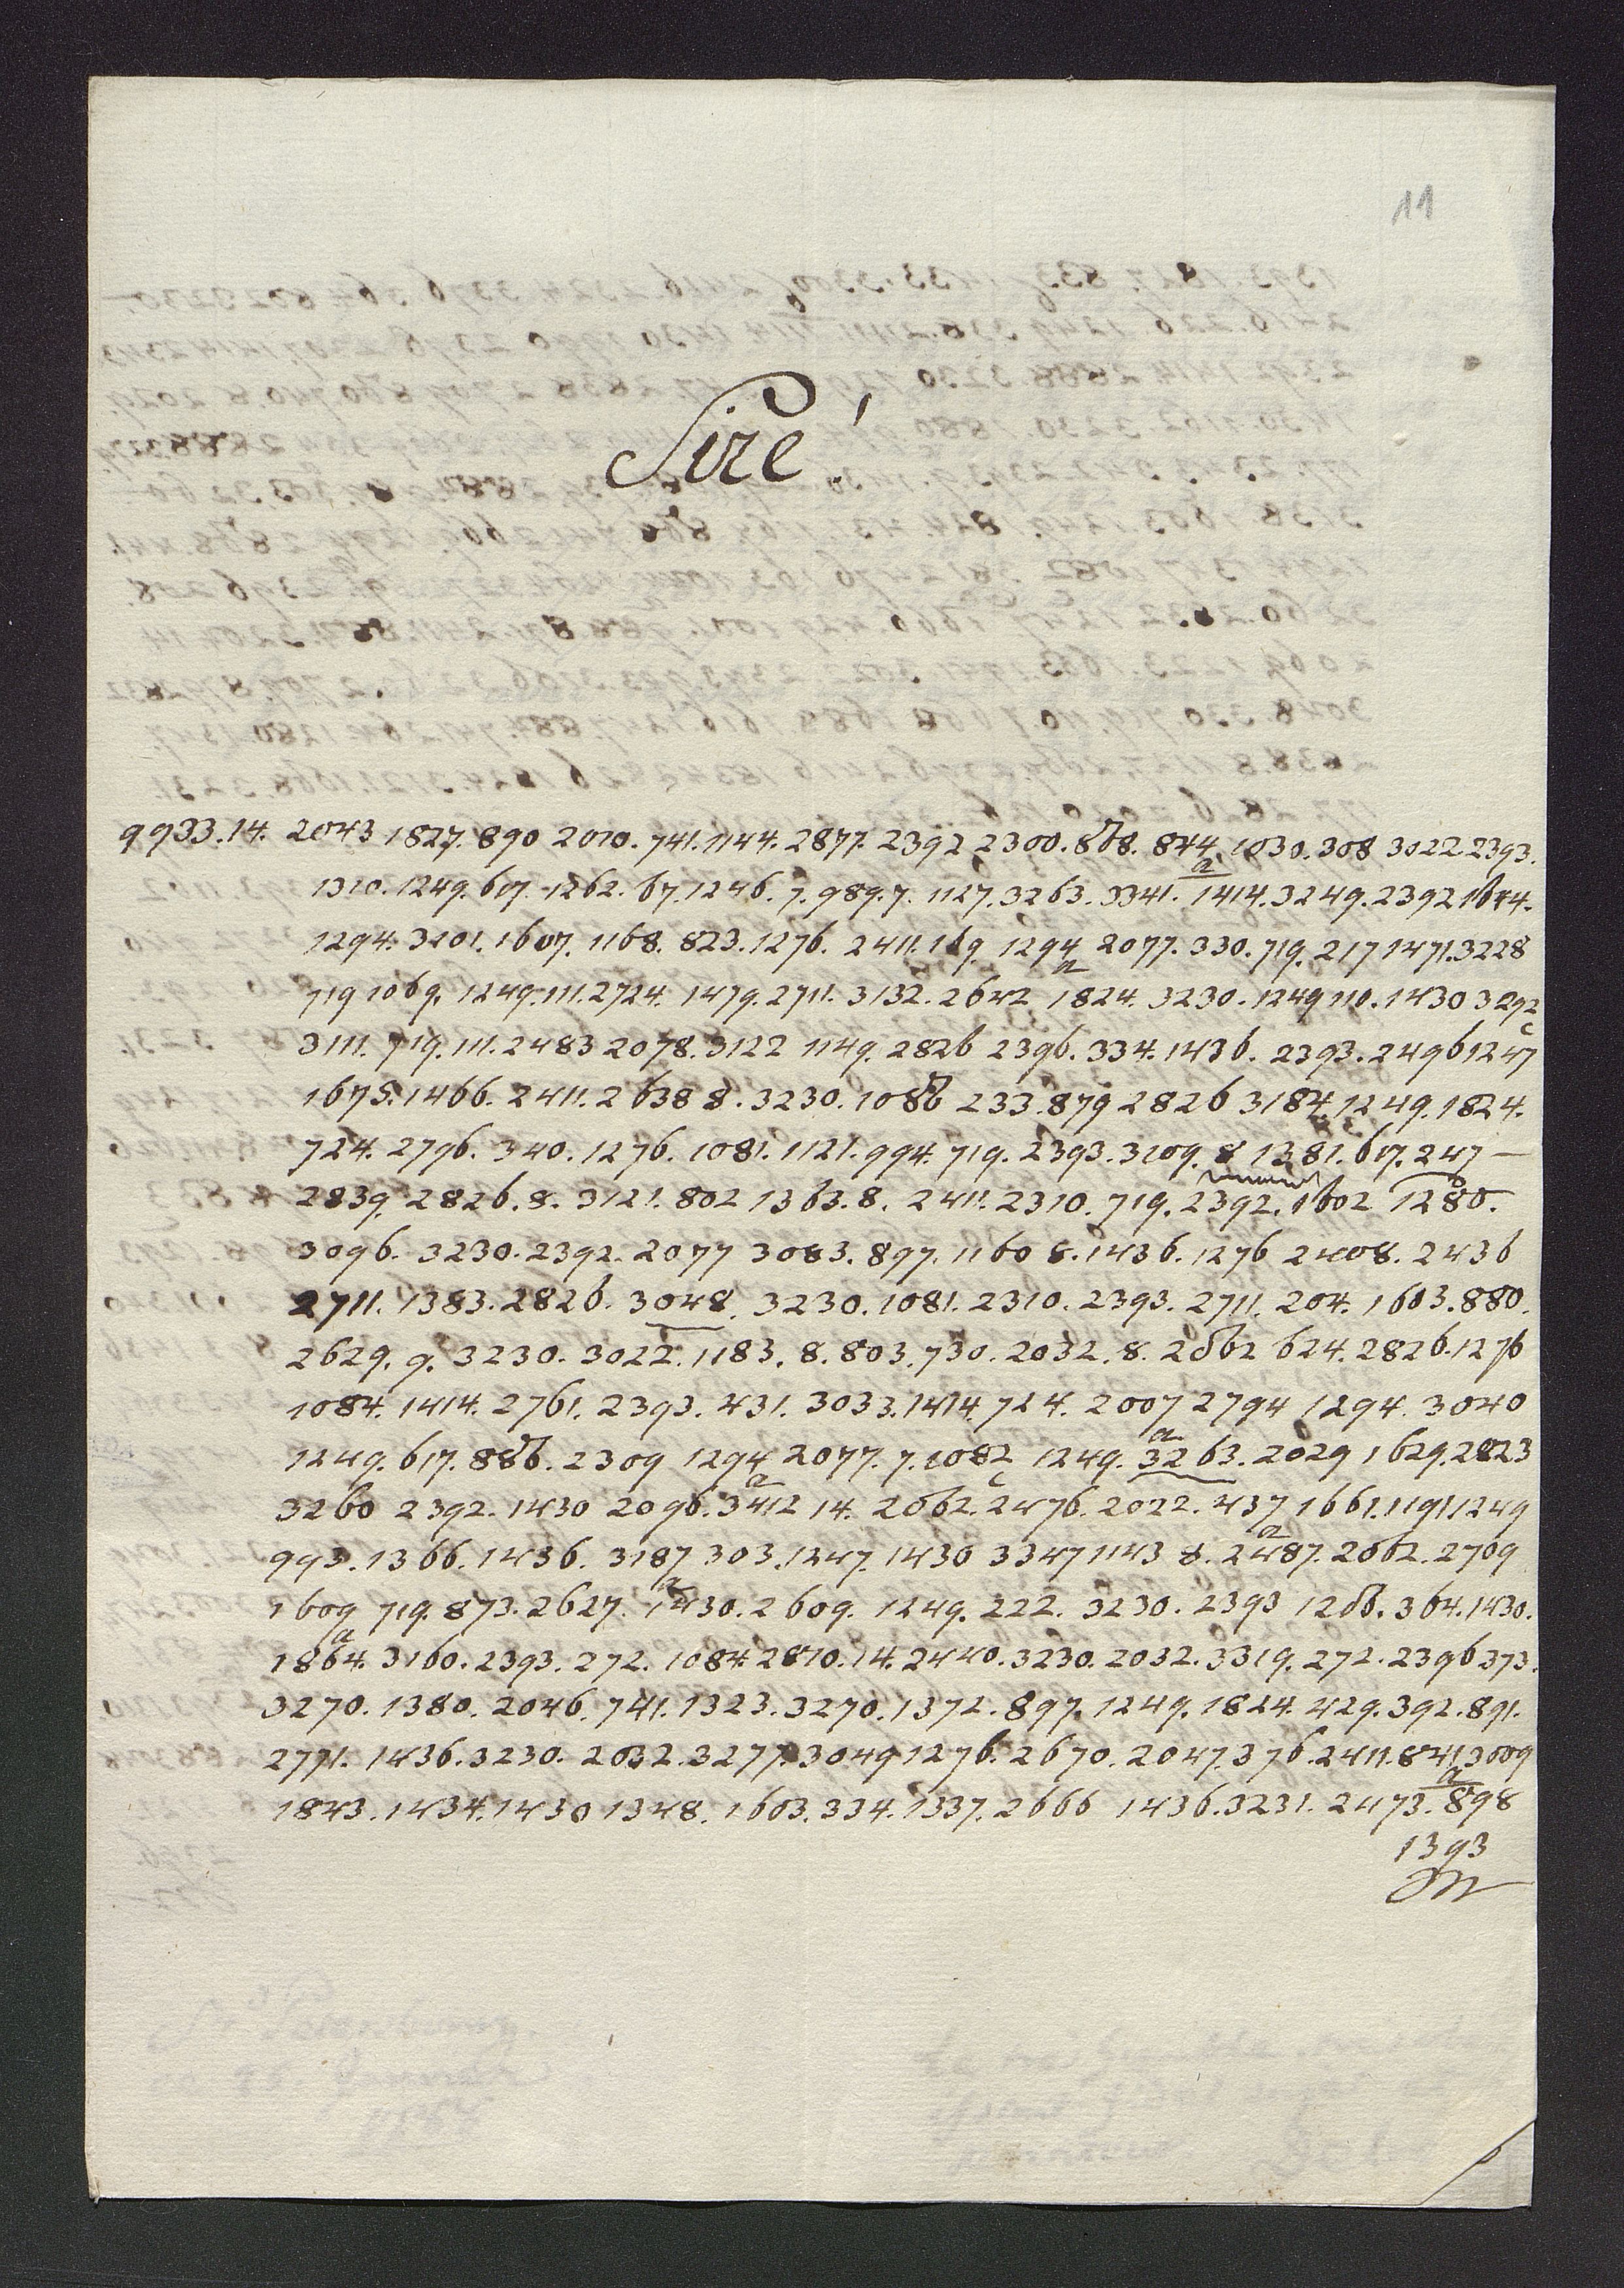 11
Sire!
9933.14. 2043 1827. 890 2010. 741. 1144. 2877. 2392 2300. 878. 844. 1030. 308 3022. 2393.
1310. 1249. 617. 1262. 67. 1246. 7. 989. 7. 1127. 3263. 3341. 1414. 3249. 2392
1294. 3201. 1607. 1168. 823. 1276. 2411. 169. 1294 2077. 330. 719. 217 1471. 3228
719 1069. 1249. 111. 2724. 1479. 2711. 3132. 2642 1824. 3230. 1249 110. 1430 3292
3111. 719. 111. 2483 2078. 3122 1149. 2826 2396. 334. 1436. 2393. 2496 1247
1675. 1466. 2411. 2638 8. 3230. 233. 879 2826 3184. 1249. 1824.
724. 2796. 340. 1276. 1081. 1121. 994. 719. 2393. 3209. 8 1381. 617. 247 —
2839. 2826. 8. 3121. 802 1363. 8. 2411. 2310. 719. 2392. 1602 1280.
3096. 3230. 2392. 2077 3083. 897. 1160 8. 1436. 1276 2408. 2436
2711. 1383. 2826. 3048. 3230. 1081. 2310. 2393. 2711. 204. 1603. 880.
2629. 9. 3230. 3022. 1183. 8. 803. 730. 2032. 8. 2062 624. 2826. 1276
1084. 1414. 2761. 2393. 431. 3033. 1414. 724. 2007 2794 1294. 3040
1249. 617. 886. 2309 1294 2077. 7. 1082 1249. 3263. 2029 1629. 2823
3260 2392. 1430 2096. 3412 14. 2062. 2476. 2022. 437 1661. 1191 1249
993. 1366. 1436. 3187 303. 1247. 1430 3347 1143 8. 2487. 2062. 2709
1609 719. 873. 2627. 1430. 2609. 1249. 222. 3230. 2393 364. 1430.
1864. 3160. 2393. 272. 1084. 2870. 14. 2440. 3230. 2032. 3319. 272. 2396 373.
3270. 1380. 2046. 741. 1323. 3270. 1372. 897. 1249. 1824. 429. 392. 891.
2771. 1436. 3230. 2032. 3277. 3049 1276. 2670. 2047. 376. 2411. 841. 3009
1843. 1434. 1430 1348. 1603. 334. 1337. 2666 1436. 3231. 2473. 898
1393